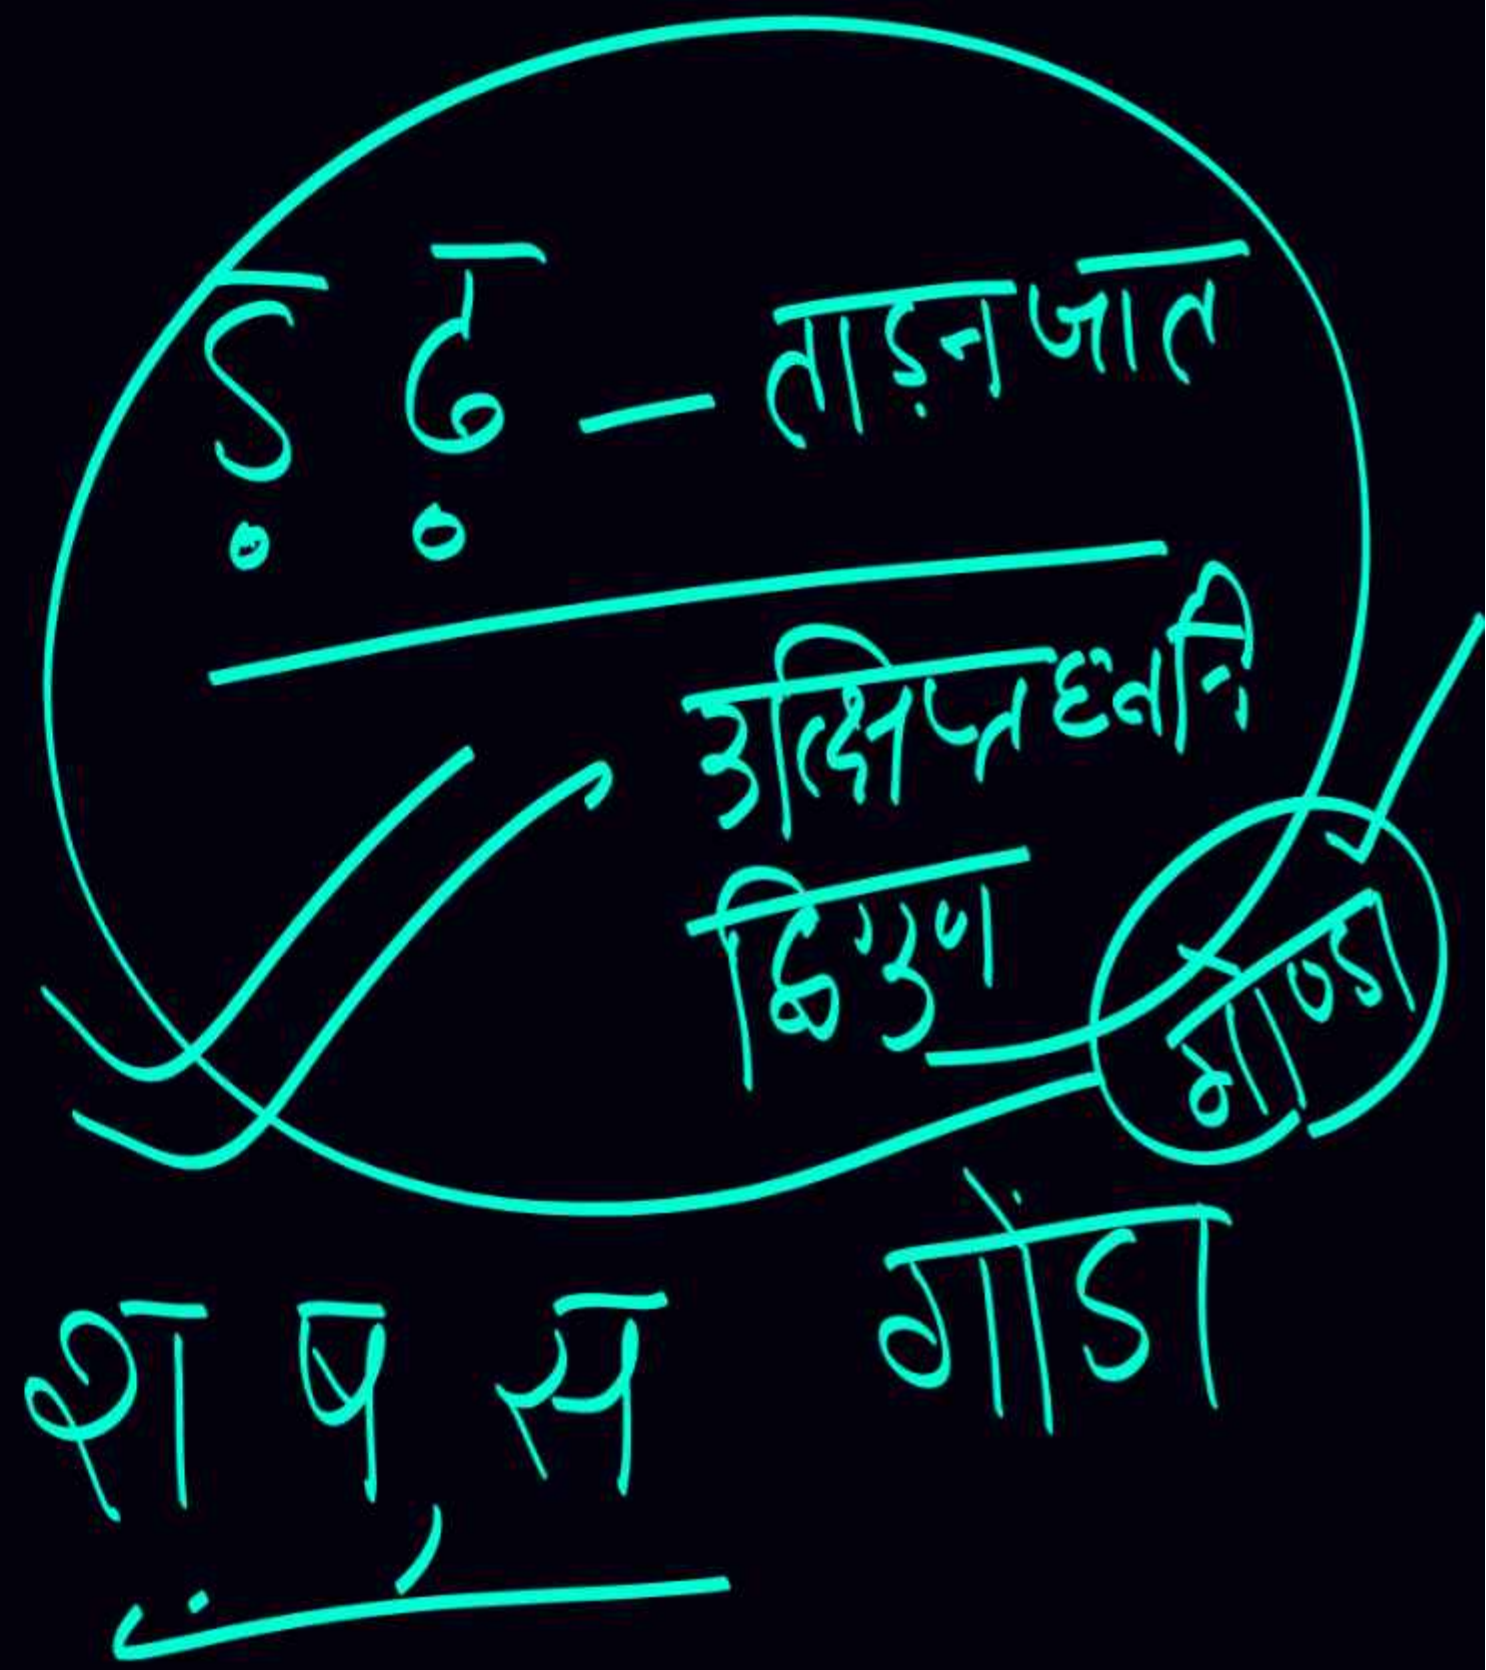 ड़ ढ़ — ताड़नजात
उत्क्षिप्त ध्वनि
द्विगुण
गोण्डा
गोंडा
श ष, स